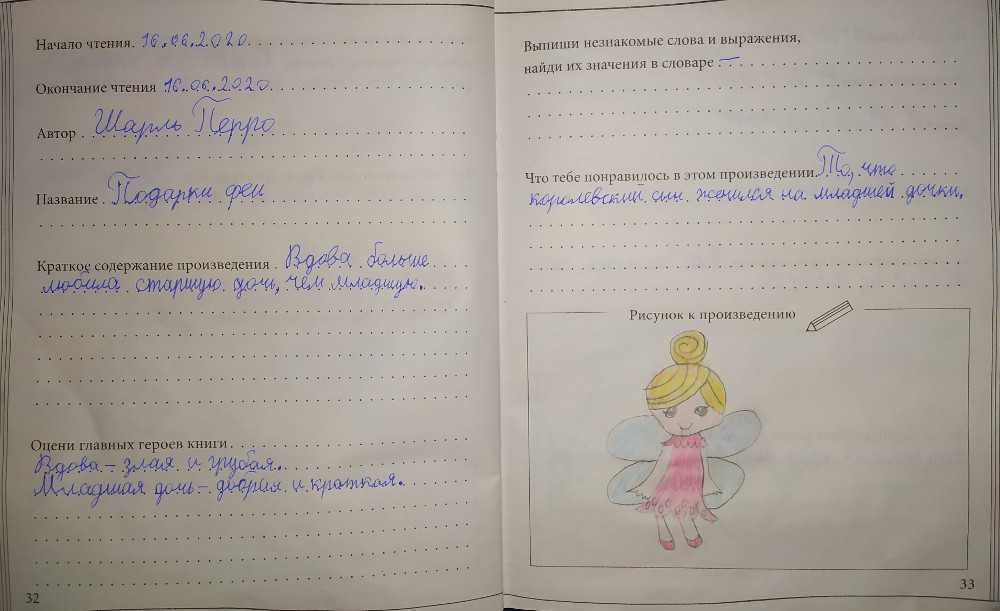 Начало чтения. 16.06.2020.
Окончание чтения 16.06.2020.
Автор Шарль Перро
Название Подарки феи
Краткое содержание произведения Вдова больше
любила старшую дочь, чем младшую.
Оцени главных героев книги
Вдова – злая и грубая.
Младшая дочь – добрая и кроткая.
32
Выпиши незнакомые слова и выражения,
найди их значения в словаре —
Что тебе понравилось в этом произведении. То, что
королевский сын женился на младшей дочки.
Рисунок к произведению
33